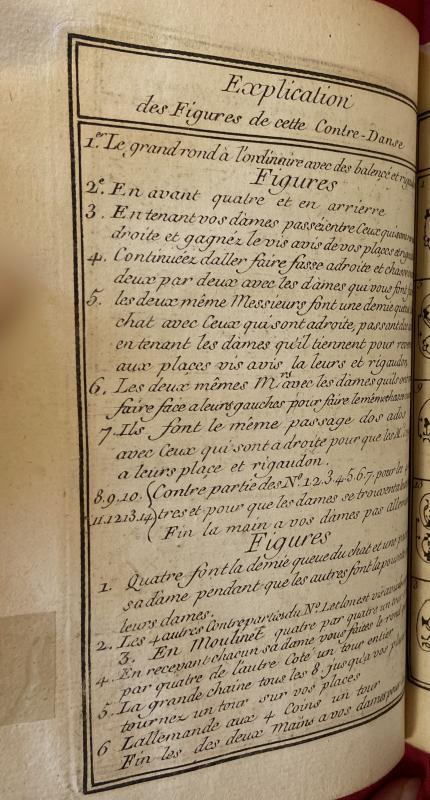 Explication
des Figures de cette Contre-Danse
1.er Le grand rond à l'ordinnire avec des balencé et rigau
Figures
2.e En avant quatre et en arrierre
3. En tenant vos dâmes passéz entre Ceux qui sont
droite et gagnéz le vis avis de vos places et
4. Continuéez daller faire fasse adroite et chasser
deux par deux avec les dâmes qui vous font
5. les deux même Messieurs font une demie queue
chat avec Ceux qui sont adroite, passant
en tenant les dâmes qu'il tiennent pour
aux places vis avis la leurs et rigaudon,
6. Les deux mêmes M.rs avec les dâmes quils
faire face a leurs gauches pour faire le même
7. Ils font le même passage dos ados
avec Ceux qui sont a droite pour que les
a leurs place et rigaudon.
8.9.10. Contre partie des N.o 1.2.3.4.5.6.7. pour les
11.12.13.14 tres et pour que les dames se trouvent
Fin la main a vos dâmes pas
Figures
1. Quatre font la demie queue du chat et une
sa dâme pendant que les autres font la
leurs dames.
2. Les 4 autres Contreparties du N.o
3. En Moulinet quatre par quatre un
4. En recevant chacun sa dâme vous faites le rond
par quatre de lautre Coté un tour entier
5. La grande chaîne tous les 8. jusqu'a vos
tournez un tour sur vos places
6 Lallemande aux 4 Coins un tour
Fin les des deux Mains a vos dames pour